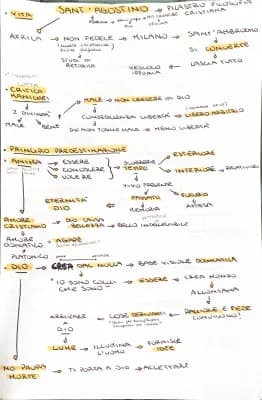 • VITA SANT'AGOSTINO → PILASTRO FILOSFIA CRISTIANA
AFRICA → NON FEDELE → MILANO → SANT'AMBROGIO
SI CONVERTE
SCUOLA DI RETORICA
VESCOVO IPPONA
LASCIA TUTTO
• CRITICA MANICHEI
MALE → NON CREDERE IN DIO
2 DIVINITÀ
CONSEGUENZA LIBERTÀ → LIBERO ARBITRIO
MALE BENE
DIO NON TOGLIE MALE → MENO LIBERTÀ
• PRINCIPIO PREDESTINAZIONE
• ANIMA → ESSERE
CONOSCERE
VOLERE
SCORRERE TEMPO
ESTERIORE
INTERIORE → RELATIVO
VIVO PRESENTE
PASSATO FUTURO
ETERNITÀ DIO
MEMORIA ATTESA
AMORE CRISTIANO → DIO CAUSA BELLEZZA → BELLO INDISCUTIBILE
AMORE DONATIVO : AGAPE
PLATONICO
• DIO → CREA DAL NULLA → BASE VISIONE DOGMATICA
"IO SONO COLUI CHE SONO" → ESSERE → CREA MONDO
ALLONTANA
ARRIVARE DIO
COSE DERIVANTI
RAGIONE E FEDE CONVIVONO!
LUME → ILLUMINA L'UOMO → FORNISCE IDEE
NO PAURA MORTE → TI PORTA A DIO → ACCETTARE